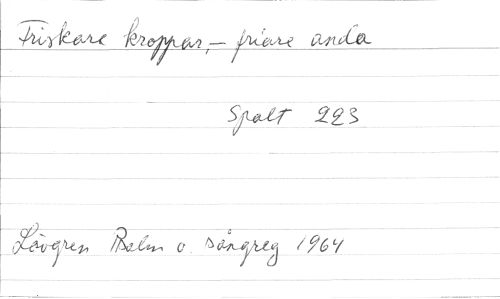 Friskare kroppar, – friare anda
Spalt 223
Lövgren Psalm o. sångreg 1964